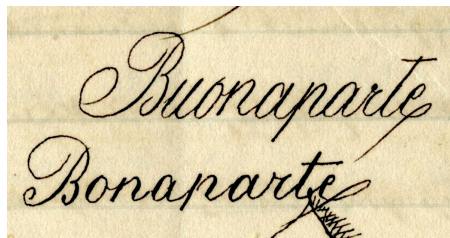 Buonaparte
Bonaparte